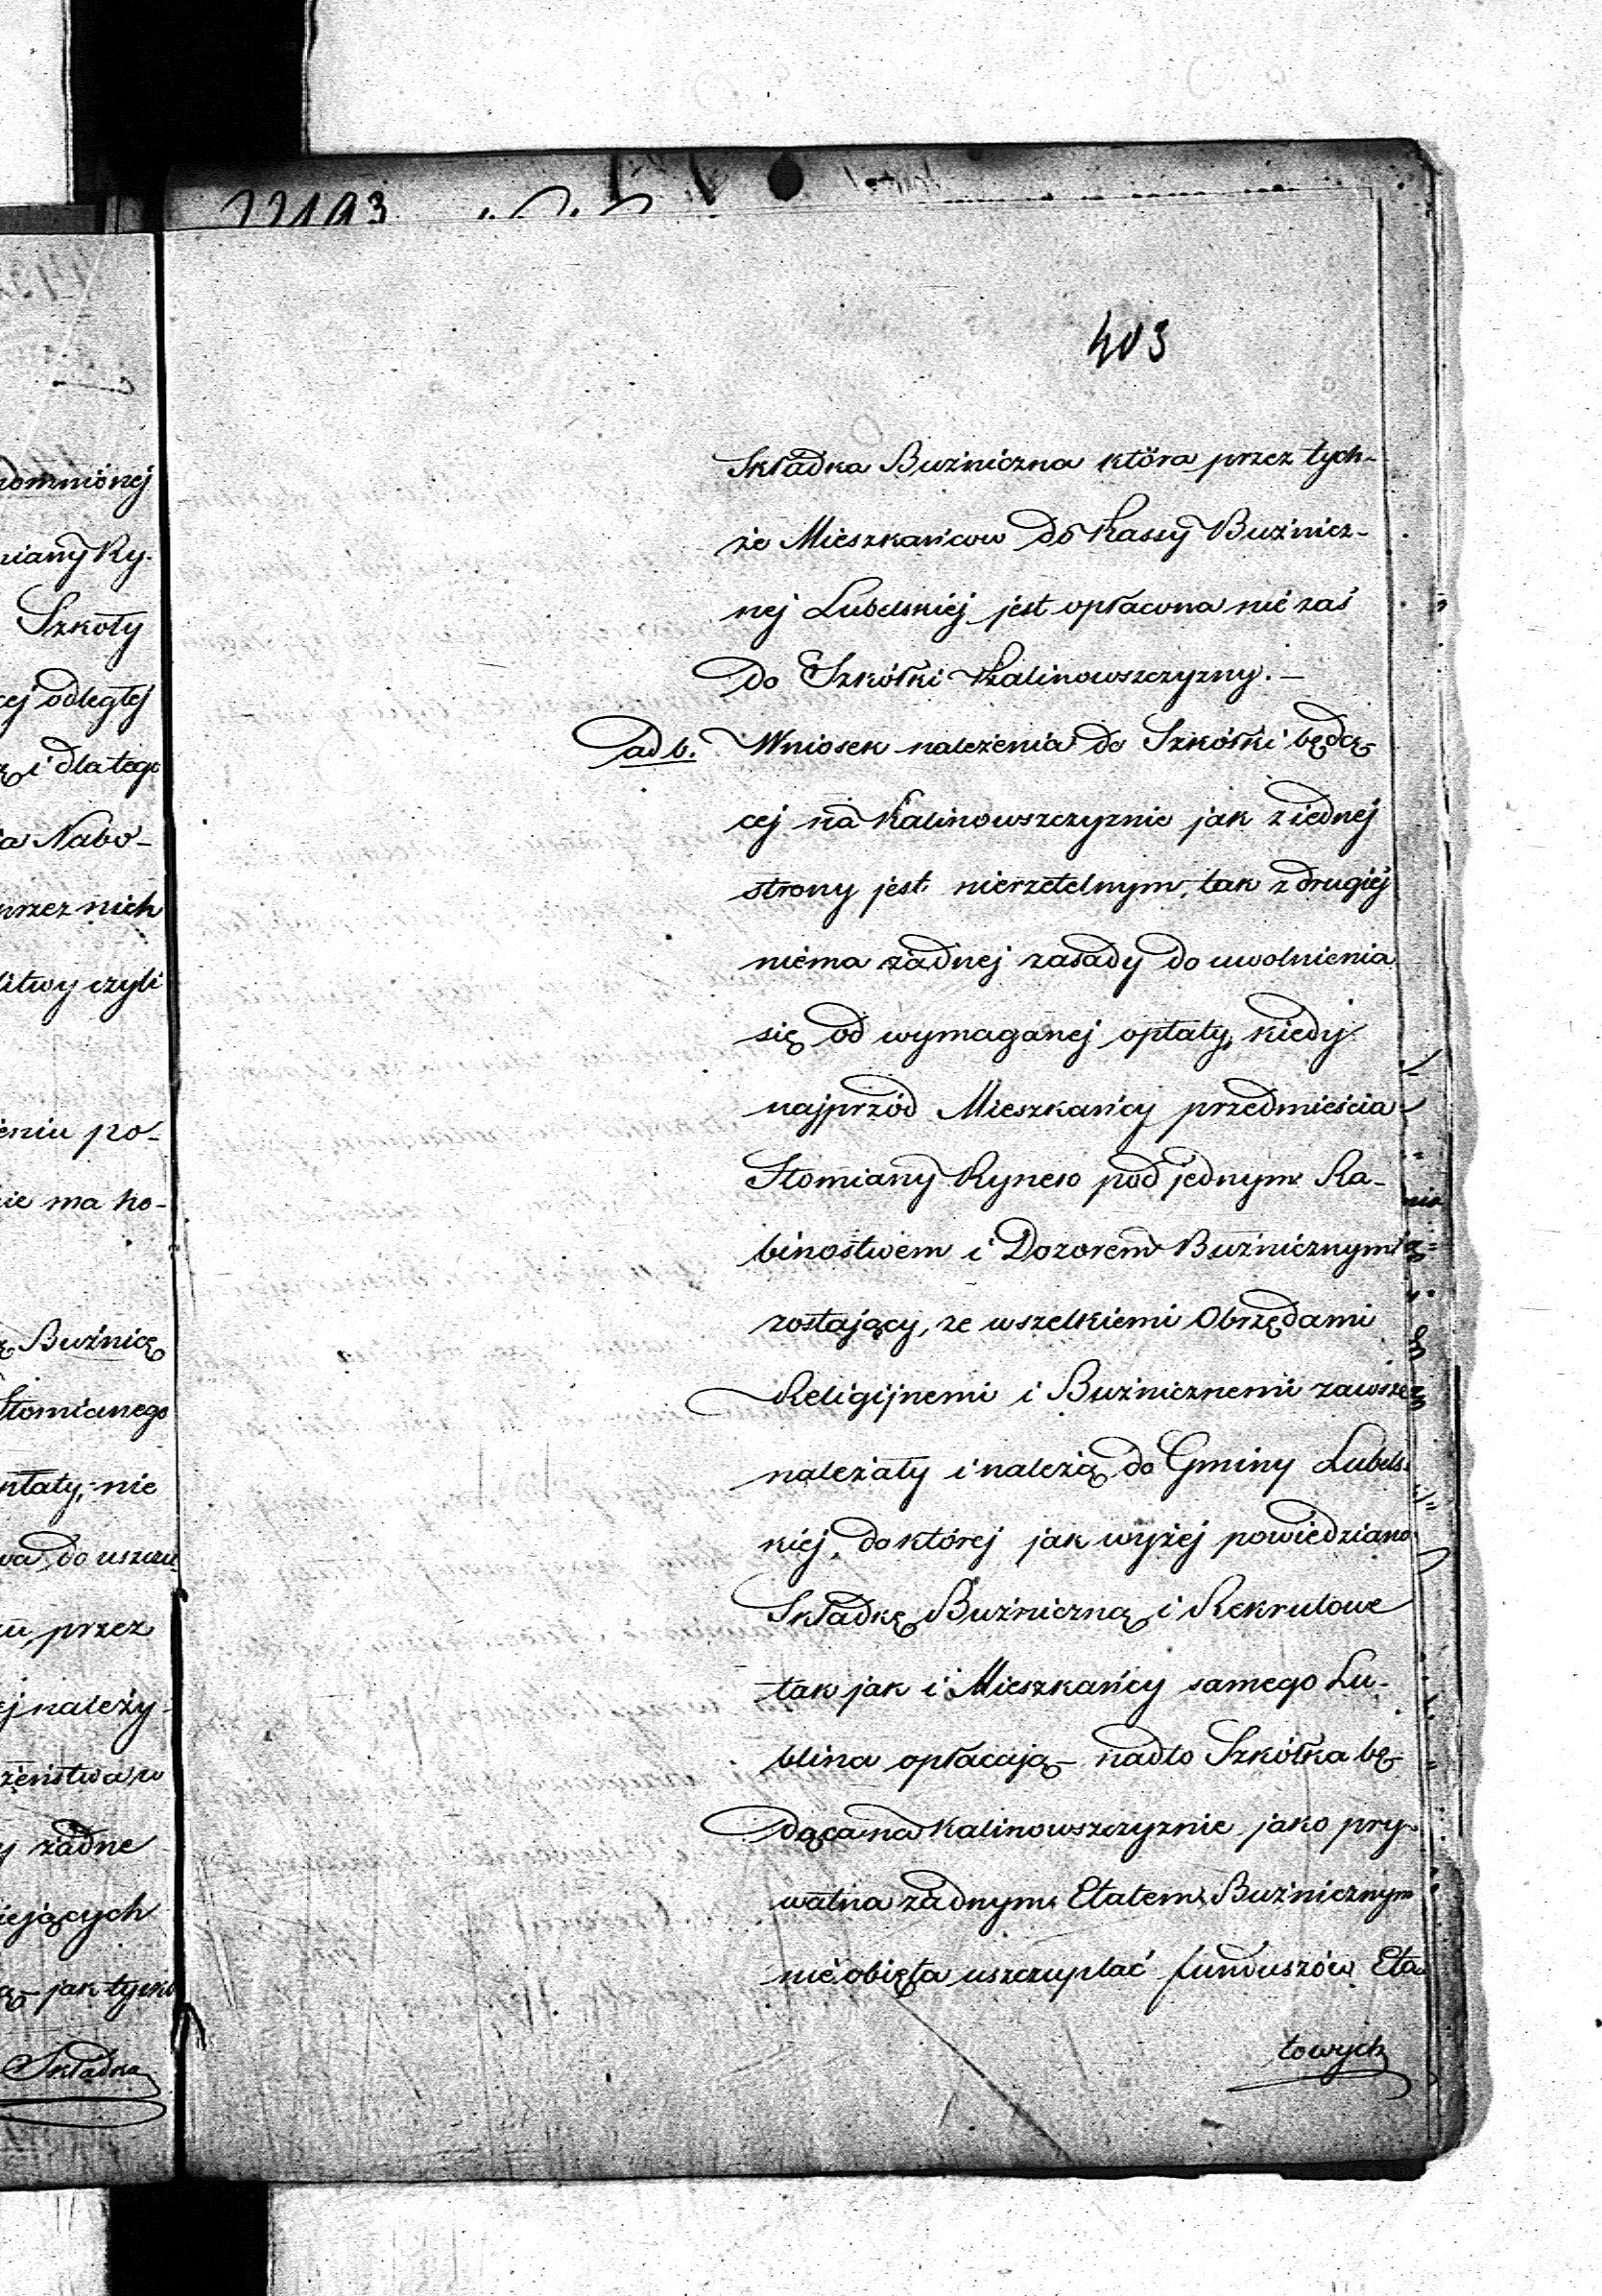 403
Składka Buźniczna która przez tych-
że Mieszkańcow do Kassy Buźnicz-
nej Lubelskiéj jest opłacona nie zaś
do Szkółki Kalinowszczyzny. —
ad b. Wniosek należenia do Szkółki będą-
cej na Kalinowszczyznie jak z iednej
strony jest nierzetelnym, tak z drugiéj
niema żadnej zasady do uwolnienia
się od wymaganej opłaty, kiedy
najprzód Mieszkańcy przedmieścia
Słomiany Rynek pod jednym Ra-
binostwem i Dozorem Buźnicznym
zostający, ze wszelkiemi Obrzędami
Religijnemi i Buźnicznemi zawsze
należały i należą do Gminy Lubels-
kiej, do której jak wyżej powiedziano
Składkę Buźniczną i Rekrutowe
tak jak i Mieszkańcy samego Lu-
blina opłacają — nadto Szkółka bę-
dąca na Kalinowszczyznie jako pry-
watna żadnym Etatem Buźnicznym
nie obięta uszczuplać funduszów Eta-
towych
pomnionej
miany Ry.
Szkoły
cej odległej
i dlatego
ia Nabo-
przez nich
litwy czyli
eniu po-
ie ma ko-
Buźnicę
Słomianego
płaty, nie
wa do uszczu
u, przez
ej należy
żeństwa w
y żadne
iejących
jak tylko
Składka